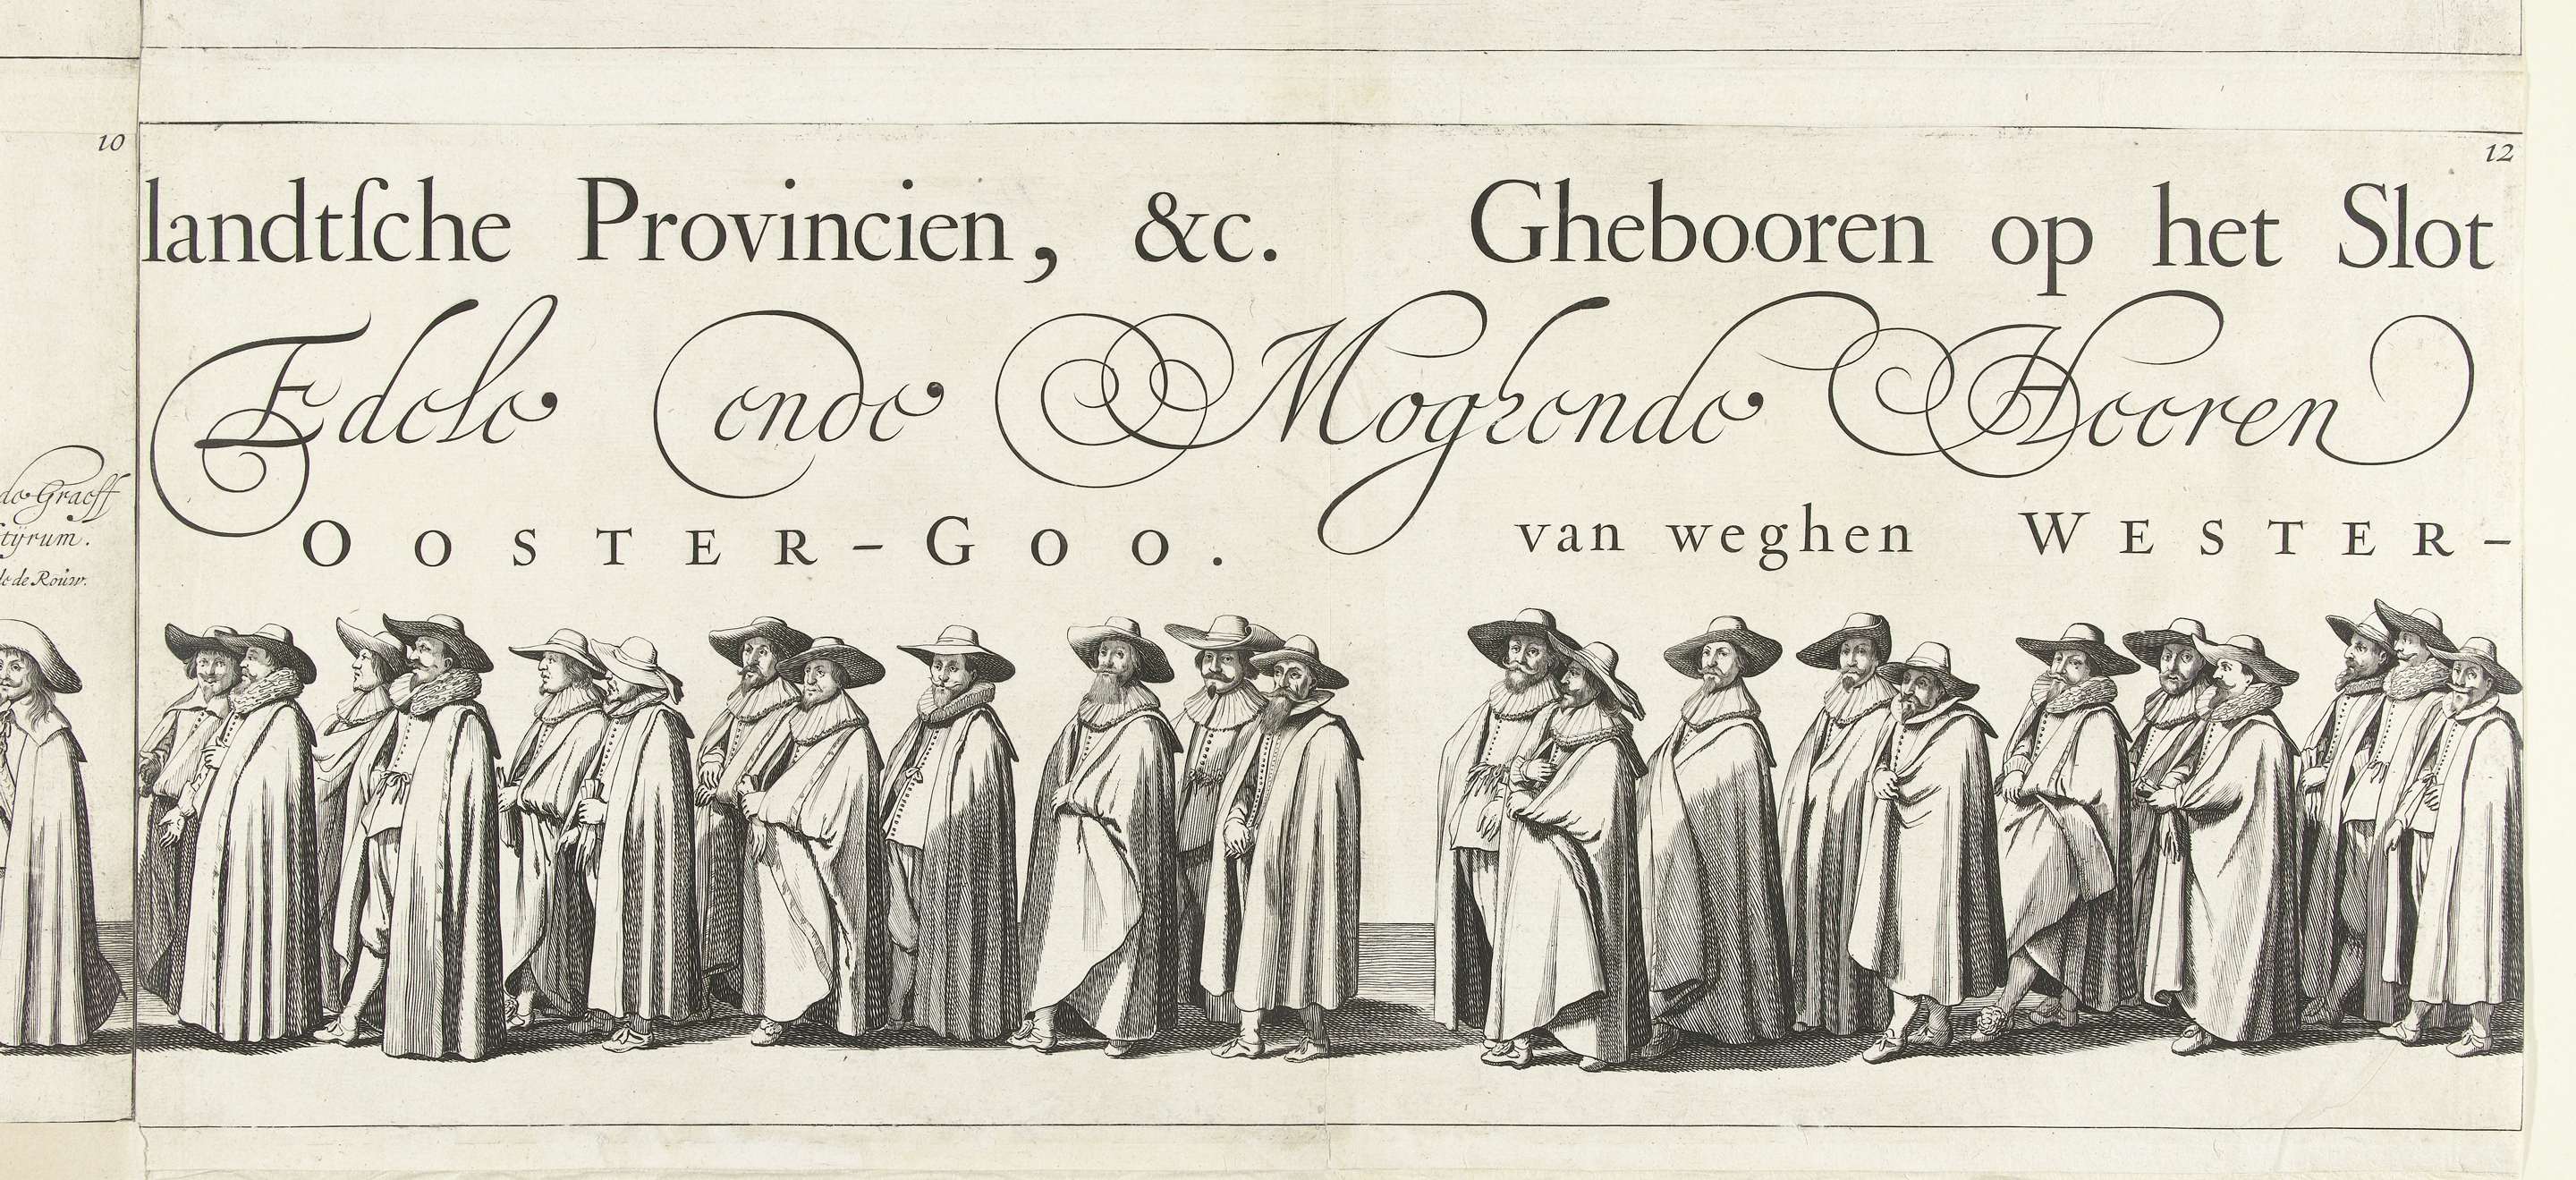 10
12
landtſche Provincien, &c. Ghebooren op het Slot
Edele ende Moghende Heeren
de Graeff
tÿrum.
de Rouw.
OOSTER-GOO. van weghen WESTER-